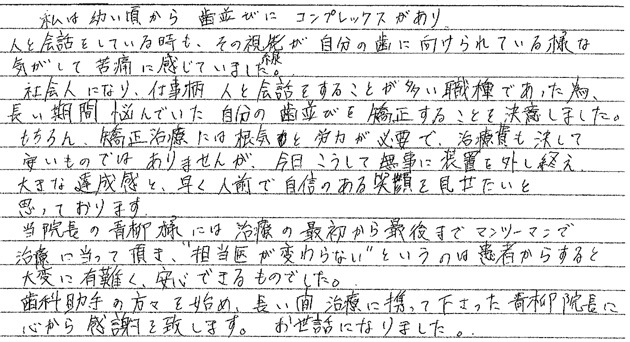 私は幼い頃から 歯並びに コンプレックスがあり
人と会話をしている時も、その視線が自分の歯に向けられている様な
気がして苦痛に感じていました。
社会人になり、仕事柄 人と会話をすることが多い職種であった為、
長い期間 悩んでいた 自分の歯並びを矯正することを決意しました。
もちろん、矯正治療には根気と労力が必要で、治療費も決して
安いものではありませんが、今日こうして無事に装置を外し終え、
大きな達成感と、早く人前で自信のある笑顔を見せたいと
思っております。
当院長の青柳様には治療の最初から最後までマンツーマンで
治療に当って頂き、"担当医が変わらない"というのは患者からすると
大変に有難く、安心できるものでした。
歯科助手の方々を始め、長い間 治療に携って下さった青柳院長に
心から感謝を致します。 お世話になりました。